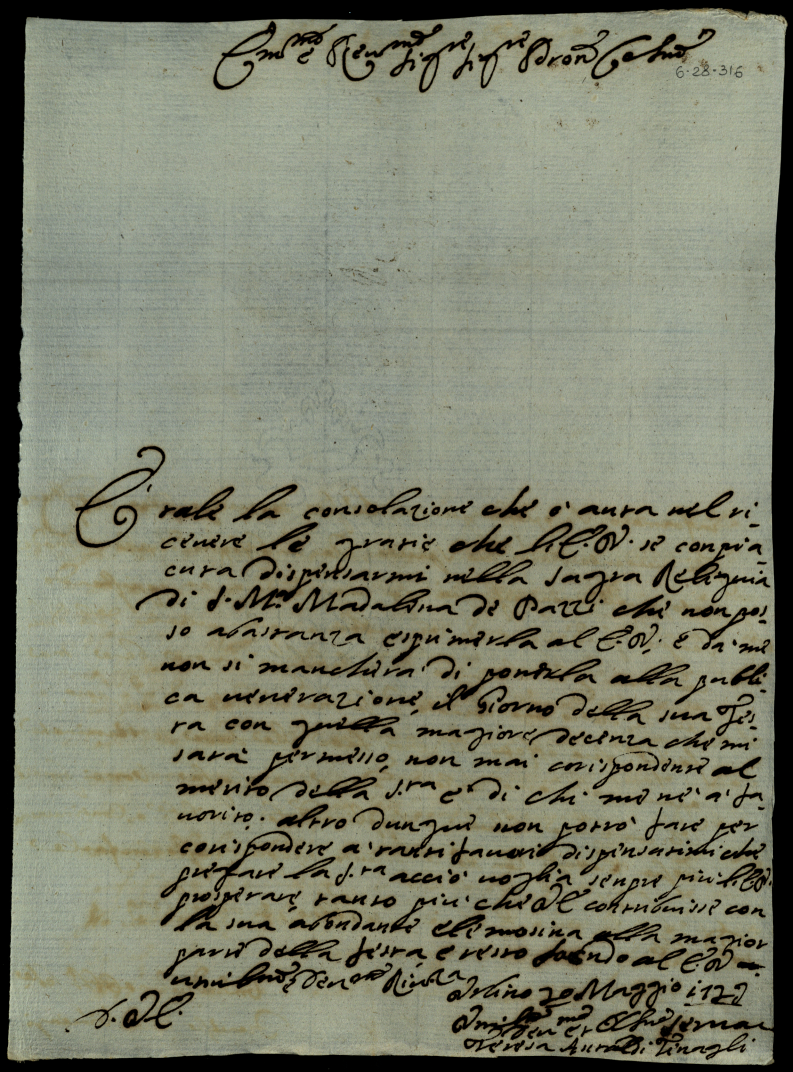 Em.mo e Rev.mo Sig.re Sig.re Pdron Col.mo
6-28-316
E' tale la consolazione che ò auta nel ri-
cevere le grazie che l'E. V. se conpia-
cuta dispensarmi nella Sagra Reliquia
di S. M.a Madalena de Pazzi che non pos-
so abastanza esprimerla al E. V. e da me
non si mancherà di ponerla alla publi-
ca venerazione il Giorno della sua Fes-
ta con quella magiore decenza che mi
sarà permesso, non mai corispondente al
merito della S.ta e di chi me ne à fa-
vorito. altro dunque non potrò fare per
corispondere a tanti favori dispensatimi che
pregare la S.ta acciò voglia senpre più l'E. V.
prosperare, tanto più che V E contribuisse con
la sua abondante elemosina alla magior
parte della festa, e resto facendo al E. V.
umil.ma e dev.ma Riv.za
Urbino 20 Maggio
D. V E.
Um.ma Dev.ma et Obl.ma Serva
Teresa